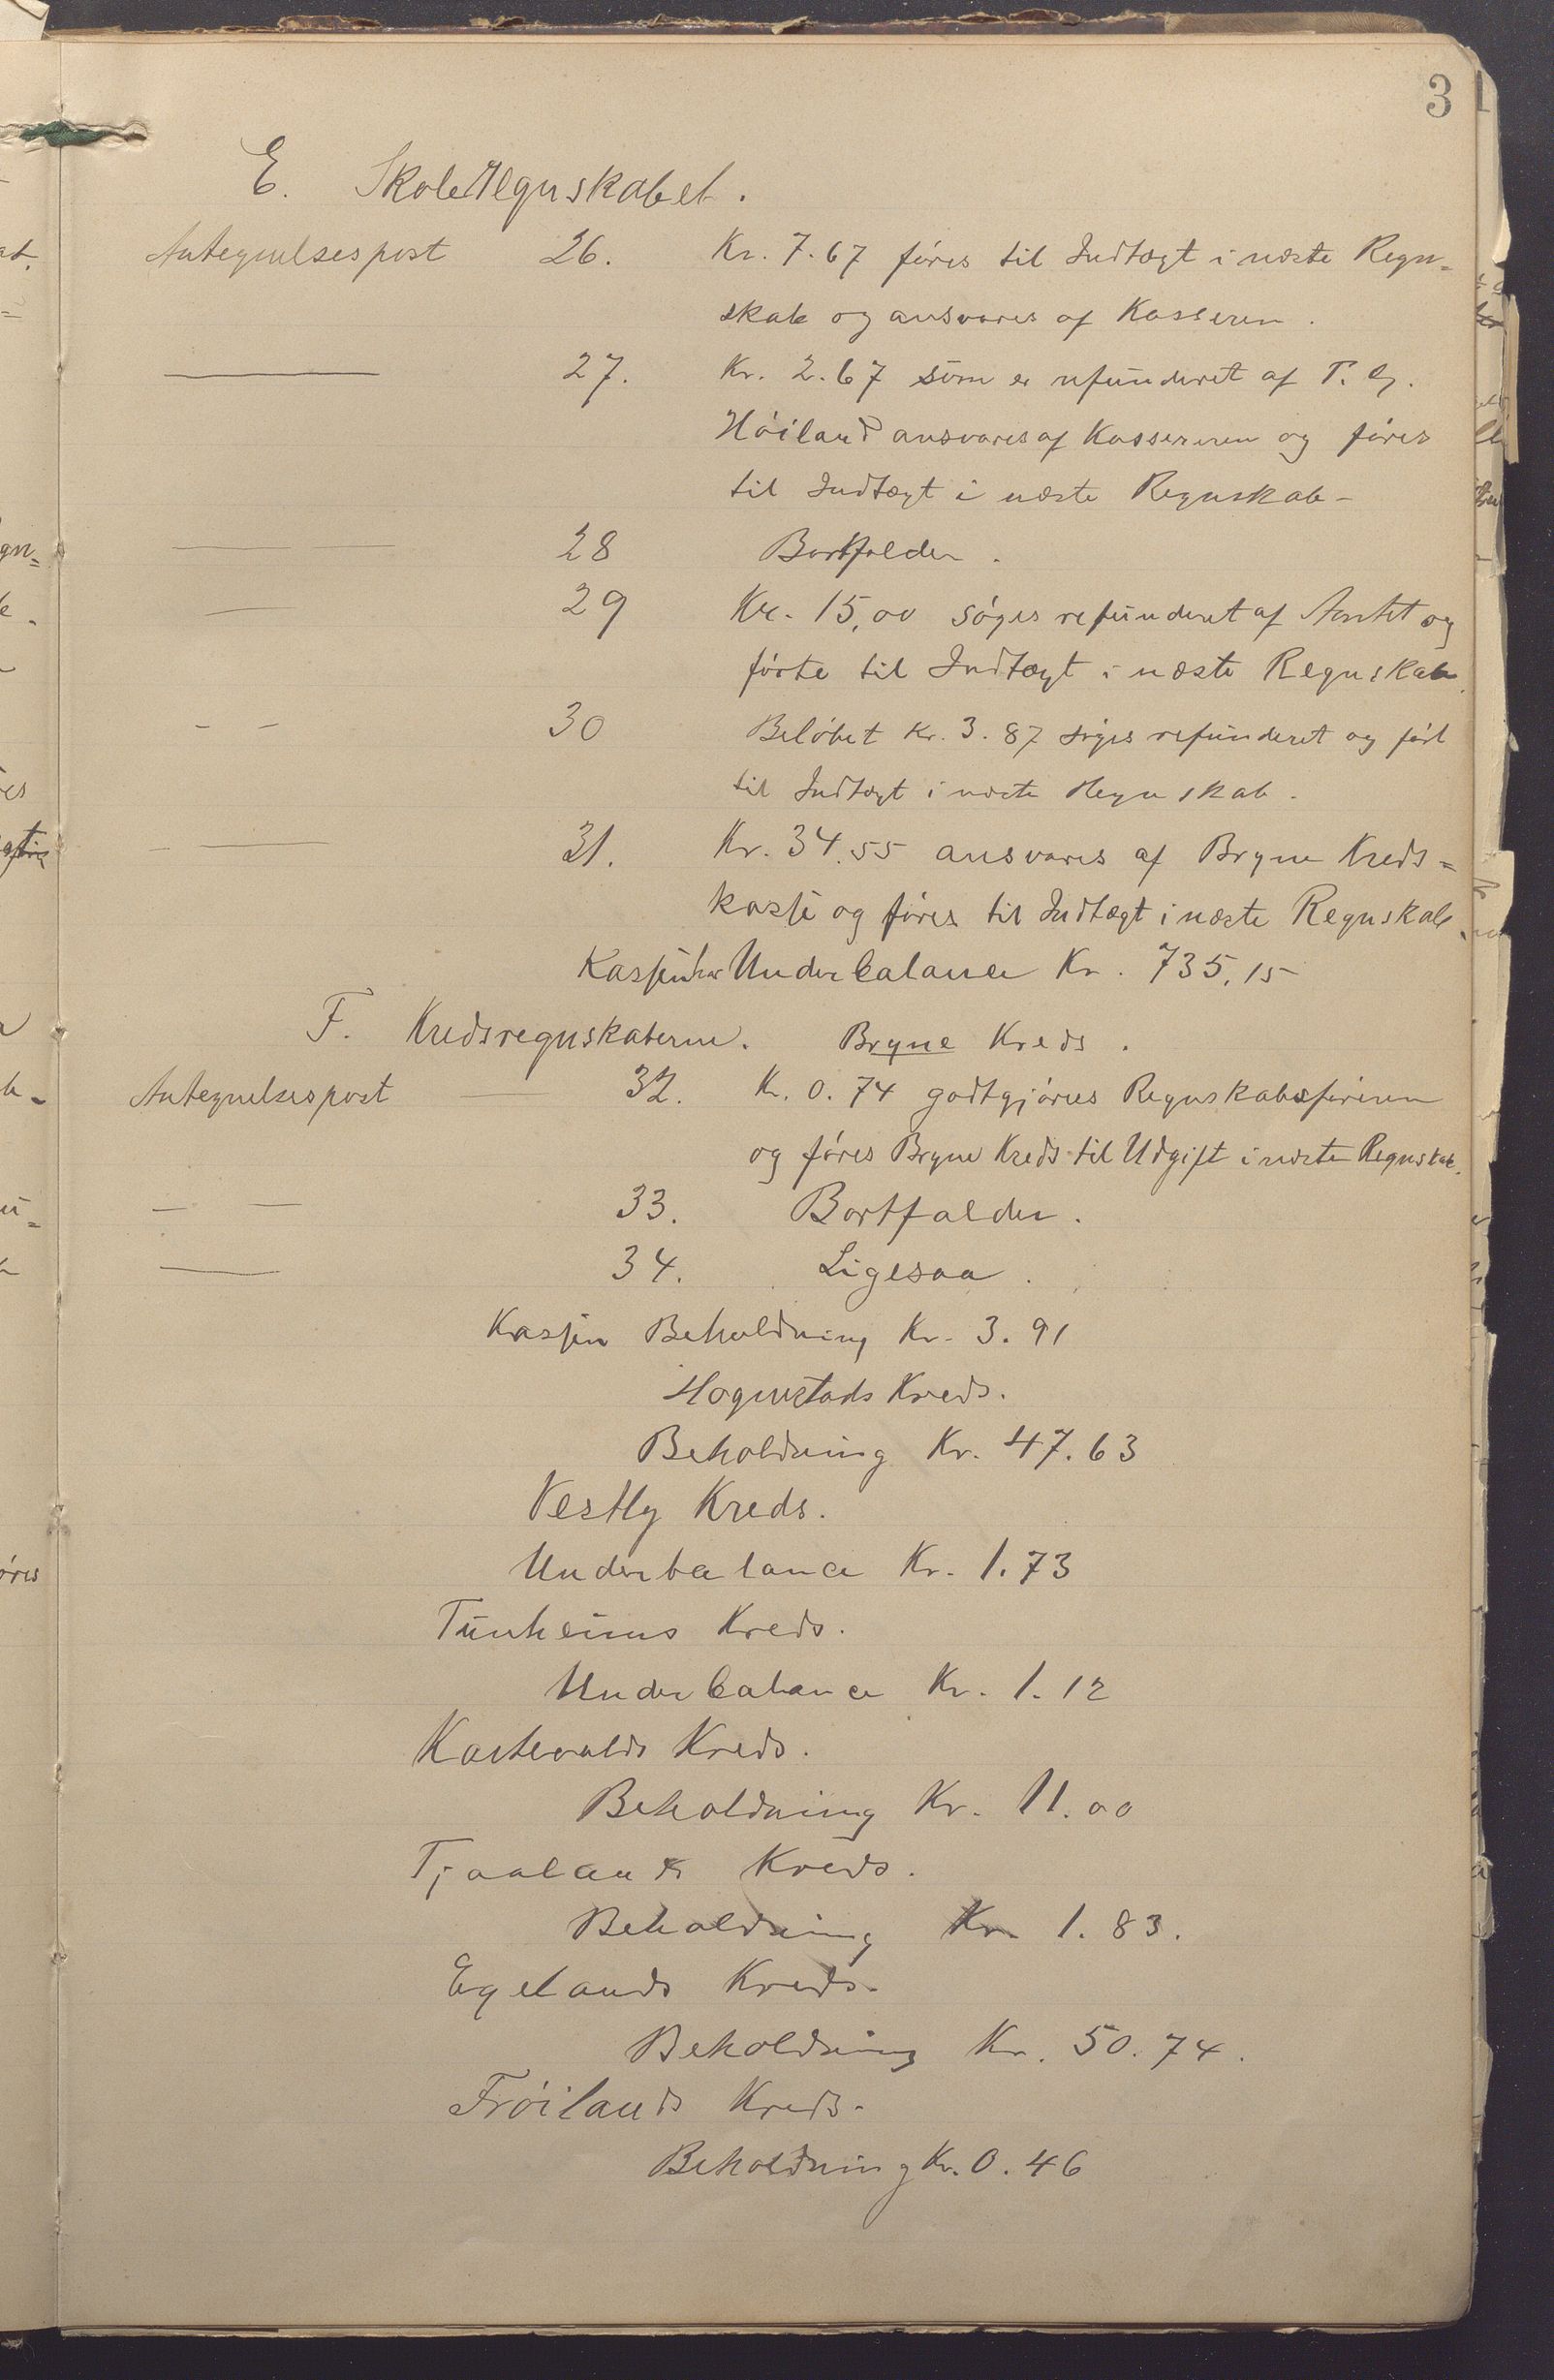 3
E. Skoleregnskabet.
Antegnelsespost 26. Kr. 7.67 føres til Indtægt i næste Regn=
skab og ansvares af Kasseren.
27. Kr. 2.67 som er refunderet af T. G.
Höiland ansvares af Kassereren og føres
til Indtægt i næste Regnskab -
28 Bortfalder.
29 Kr. 15,00 søges refunderet af Amtet og
førte til Indtægt i næste Regnskab.
30 Beløbet Kr. 3.87 søges refunderet og ført
til Indtægt i næste Regnskab.
31. Kr. 34.55 ansvares af Bryne Kreds=
kasse og føres til Indtægt i næste Regnskab.
Kassen har Underbalance Kr. 735,15
F. Kredsregnskaberne. Bryne Kreds.
Antegnelsespost 32. Kr. 0.74 godtgjøres Regnskabsføreren
og føres Bryne Kreds til Udgift i næste Regnskab.
33. Bortfalder.
34. Ligesaa.
Kassen Beholdning Kr. 3.91
Hognestads Kreds.
Beholdning Kr. 47.63
Vestly Kreds.
Underbalance Kr. 1.73
Tunheims Kreds.
Underbalance Kr. 1.12
Kartevolds Kreds.
Beholdning Kr. 11.00
Tjaalands Kreds.
Beholdning Kr. 1.83.
Egelands Kreds.
Beholdning Kr. 50.74.
Fröilands Kreds.
Beholdning Kr. 0.46